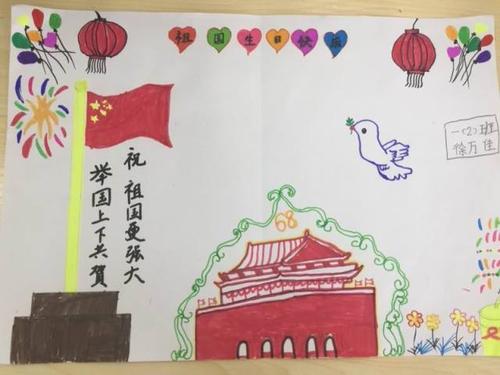 祖国生日快乐
祝 祖国更强大
举国上下共賀
68
一(2)班
徐万佳